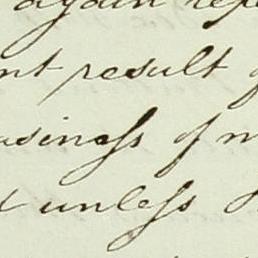 again rep
nt result
usiness of m
t unless